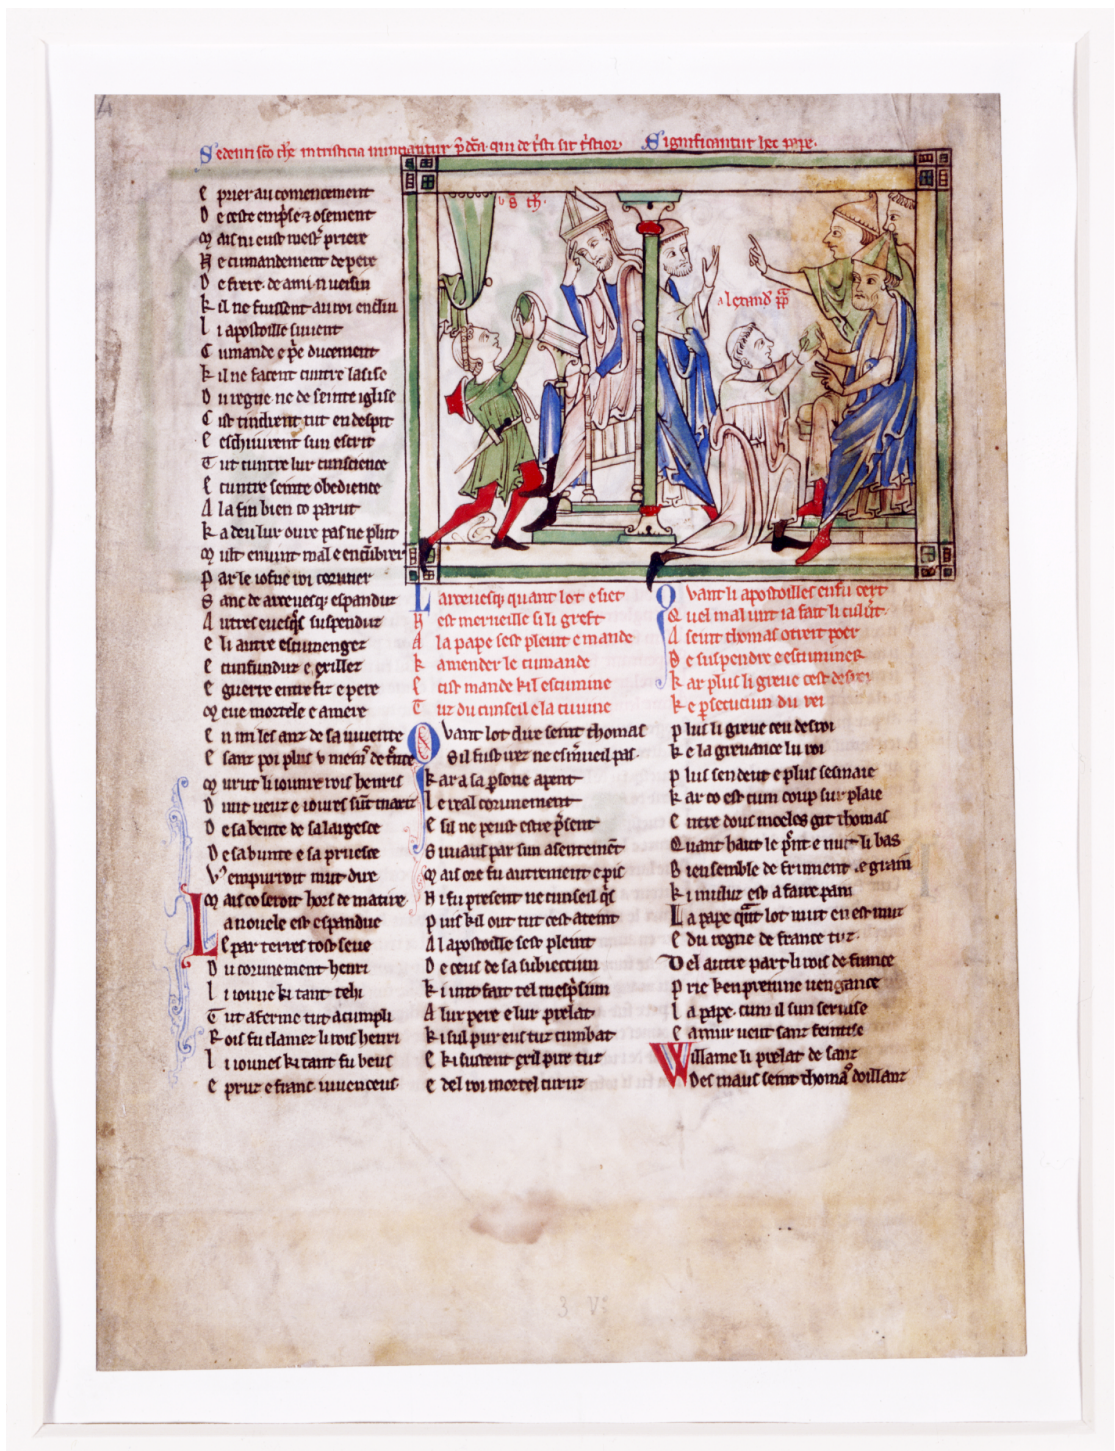 Sedenti sco the in tristicia nunciantur p̄dca qui de tsti sit tstior. Significantur hec pape.
E prier au comencement
D e ceste emp̄se ⁊ osement
M ais ni eust mest' priere
N e cumandement de pere
D e frere. de ami. ne ueisin
K il ne fuissent au roi enclin
L i apostoille suuent
C umande e p̄e ducement
K il ne facent cuntre lasise
D u regne ne de seinte iglise
C ist tindrent tut en despit
E eschiuirent sun escrit
T ut cuntre lur cunscience
E cuntre seinte obedience
A la fin bien co parut
K a deu lur oure pas ne plut
M ult en uint mal e encūbrer
P ar le iofne roi coruner
S anz de arceuesq; espandur
A utres euesq̄s suspendur
E li autre escumenger
E cunfundur e exillez
E guerre entre fiz e pere
M eue mortele e amere
E n mi les anz de sa iuuente
E sanz poi plus v mein' de trente
M urut li iouure rois henris
D unt ueuz e iouures sūt marriz
D e sa beute de sa largesce
D e sa bunte e sa pruesce
V' empurroit mut dire
M ais co seroit hors de matire
L a nouele est espandue
E par terres tost seue
D u corunement henri
L i ioune ki tant tehi
T ut aferme tut acumpli
R ois fu clamez li rois henri
L i iounes ki tant fu beus
E pruz e franc iuuenceus
v s̄ th.
alexand' pp̄
L arceuesq; quant lot e siet
N est merueille si li greft
A la pape sest pleint e mande
K amender le cumande
E cist mande kil escumine
T uz du cunseil e la cuuine
Q vant li apostoilles enfu cert
Q uel mal unt ia fait li culūt.
A seint thomas otreit poer
D e suspendre e escuminer
K ar plus li greue cest desroi
K e p̄secuciun du rei
Q vant lot dire seint thomas
S il fust irez ne esmueil pas.
K ar a sa p̄sone apent
L e real corunement
E sil ne peust estre p̄sent
S iuaus par sun asentemēt
M ais ore fu autrement e pis
N i fu present ne cunseil q̄s
P uis kil out tut cest ateint
A l apostoille sest pleint
D e ceus de sa subiectiun
K i unt fait tel mesp̄sium
A lur pere e lur prelat
K i sul pur eus tuz cumbat
E ki sustent exil pur tut
E del roi mortel curuz
P lus li greue ceu desroi
K e la greuance lu roi
P lus sen deut e plus sesmaie
K ar co est cum coup sur plaie
E ntre dous moeles git thomas
Q uant haut le p̄nt e nuit li bas
B ien semble de frument le grain
K i muluz est a faire pain
L a pape quāt lot mut en est mut
E du regne de france tuz.
D el autre part li rois de france
P rie ken prenne uengance
L a pape. cum il sun seruise
E amur ueut sanz feintise
W illame li prelat de sanz
D es maus seint thomas doillanz
3 Vº